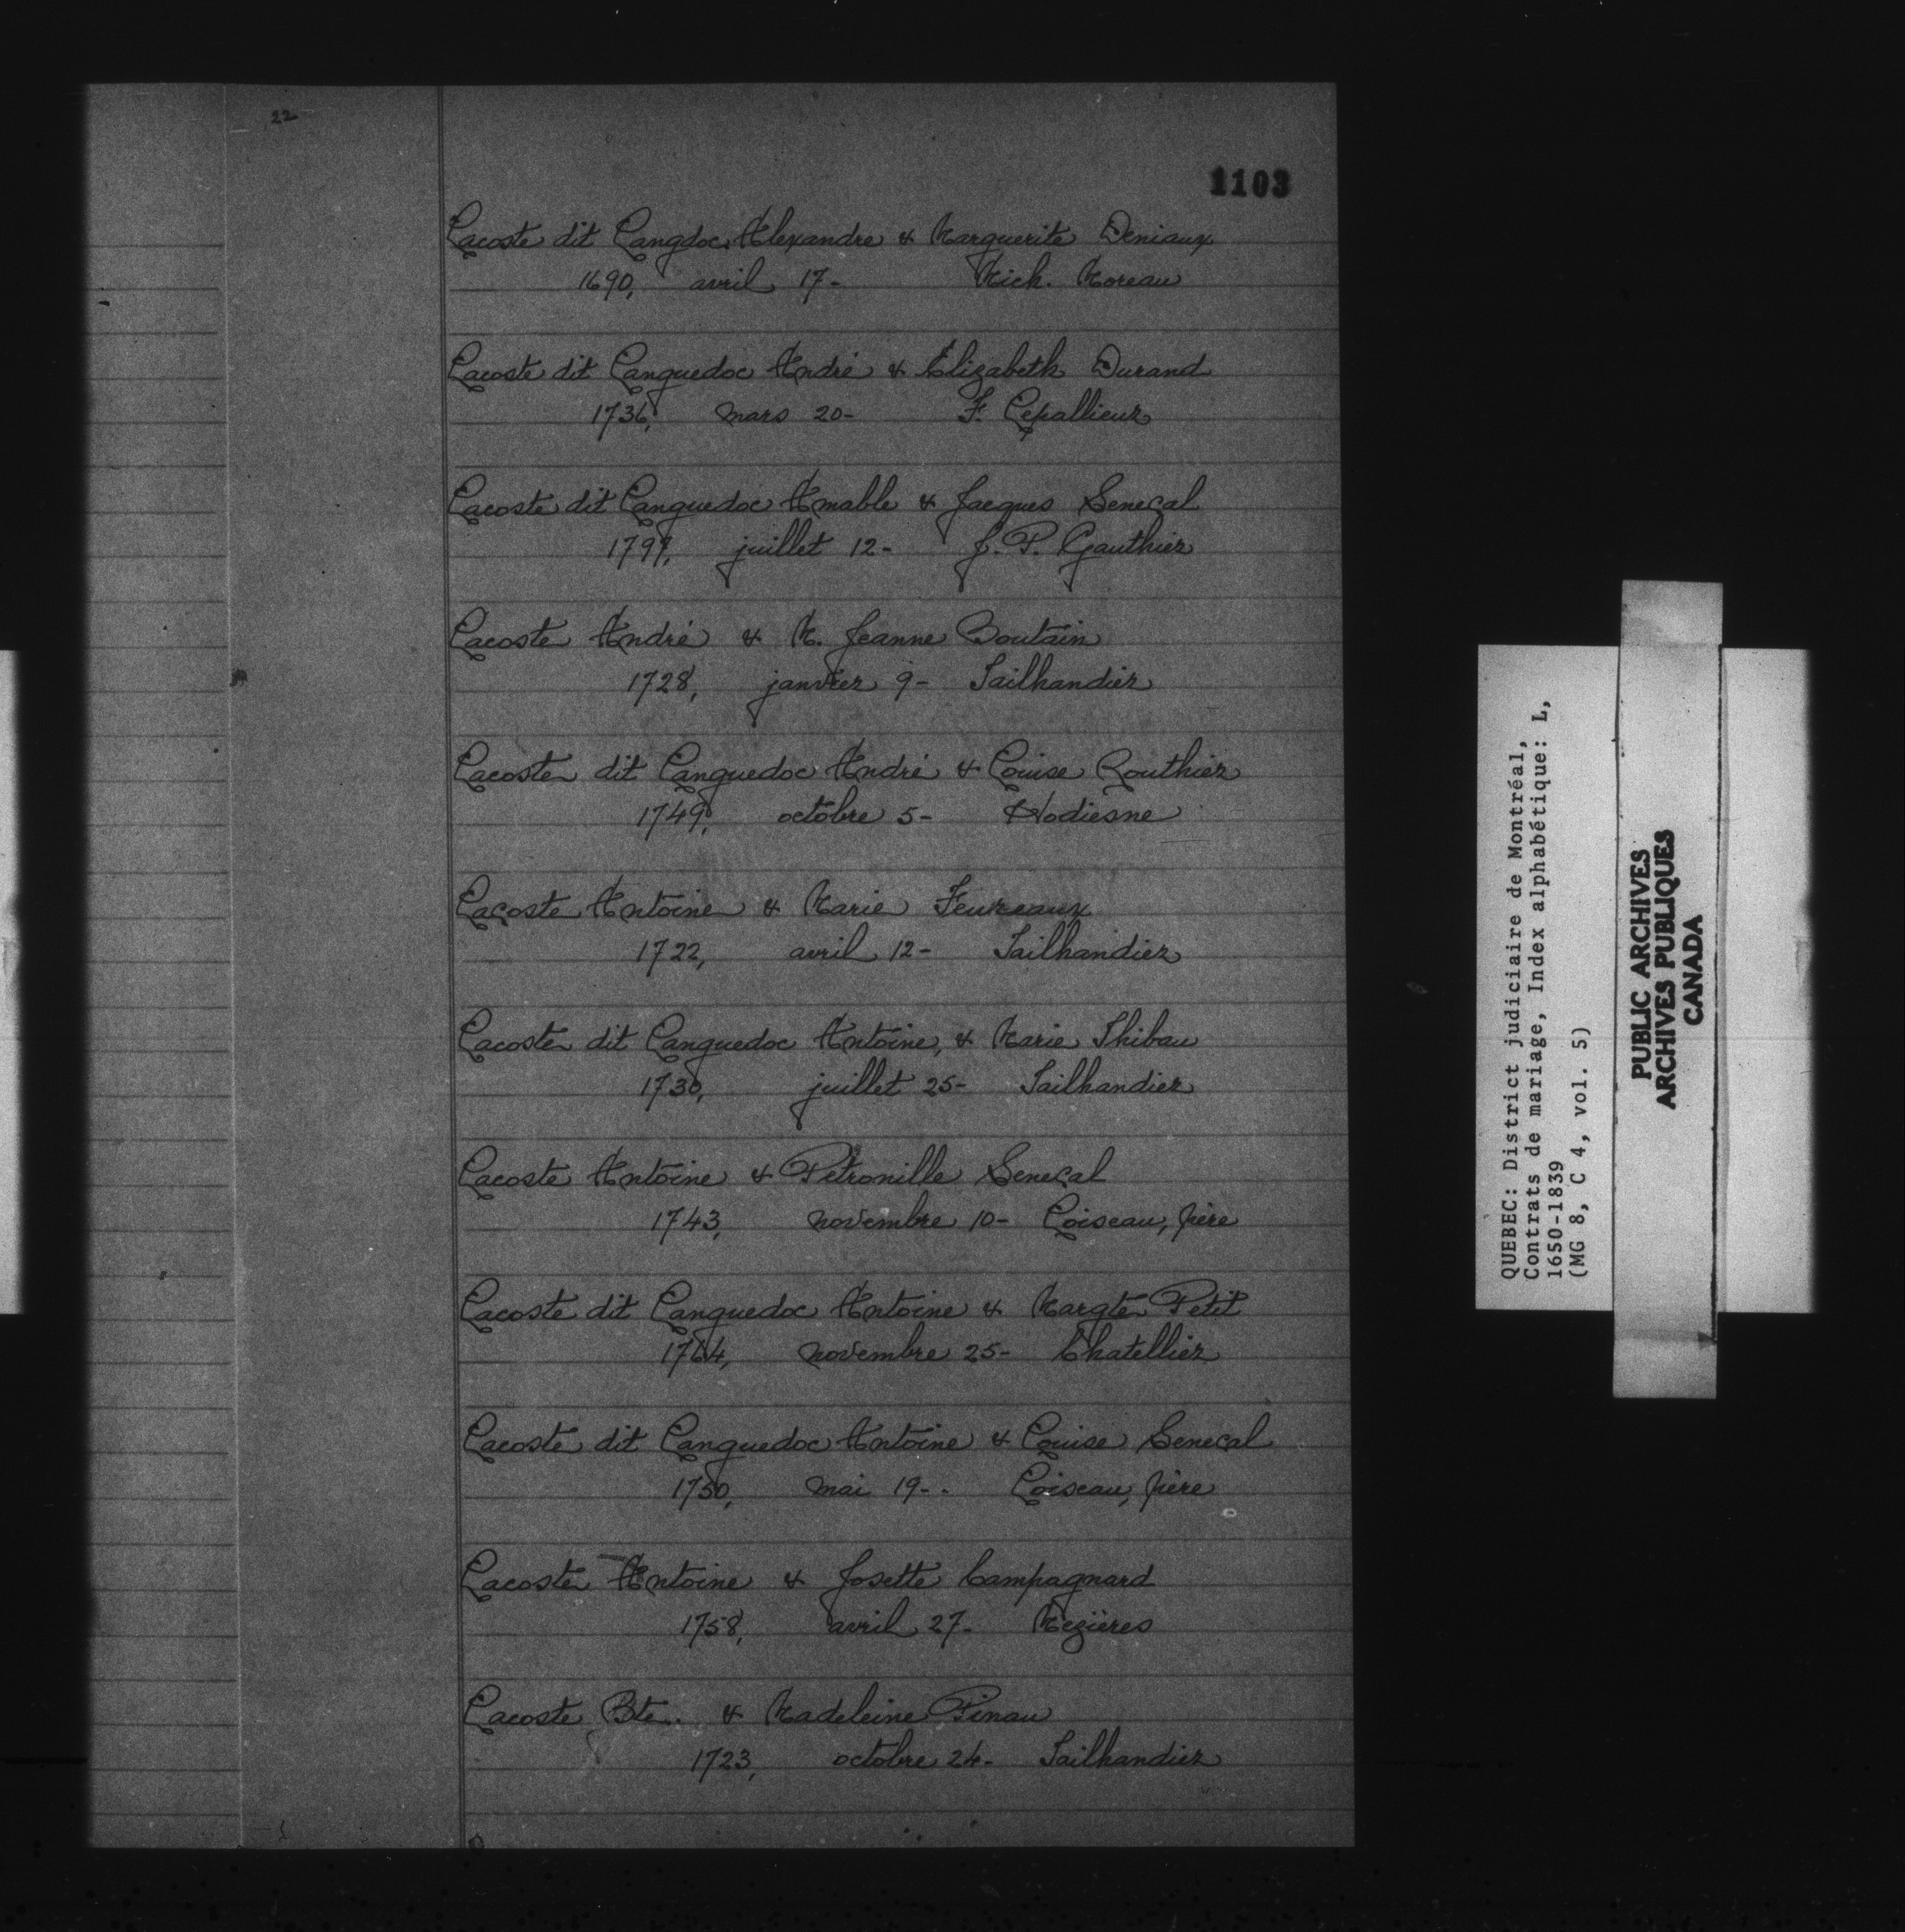 22
1103
Lacoste dit Langdoc Alexandre & Marguerite Deniaux
1690, avril 17- Mich. Moreau
Lacoste dit Languedoc André & Élizabeth Durand
1736, mars 20- F. Lepallieur
Lacoste dit Languedoc Amable & Jacques Senecal
1797, juillet 12- J. P. Gauthier
Lacoste André & M. Jeanne Boutain
1728, janvier 9- Tailhandier
Lacoste dit Languedoc André & Louise Routhier
1749, octobre 5- Hodiesne
Lacoste Antoine & Marie Feureaux
1722, avril 12- Tailhandier
Lacoste dit Languedoc Antoine, & Marie Thibau
1730, juillet 25- Tailhandier
Lacoste Antoine & Pétronille Senecal
1743, novembre 10- Loiseau, père
Lacoste dit Languedoc Antoine & Margte Petit
1764, novembre 25- Chatellier
Lacoste dit Languedoc Antoine & Louise Senecal
1750, mai 19-. Loiseau, père
Lacoste Antoine & Josette Campagnard
1758, avril 27- Mezières
Lacoste Bte. & Madeleine Pinau
1723, octobre 24- Tailhandier
QUEBEC: District judiciaire de Montréal,
Contrats de mariage, Index alphabétique: L,
1650-1839
(MG 8, C 4, vol. 5)
PUBLIC ARCHIVES
ARCHIVES PUBLIQUES
CANADA